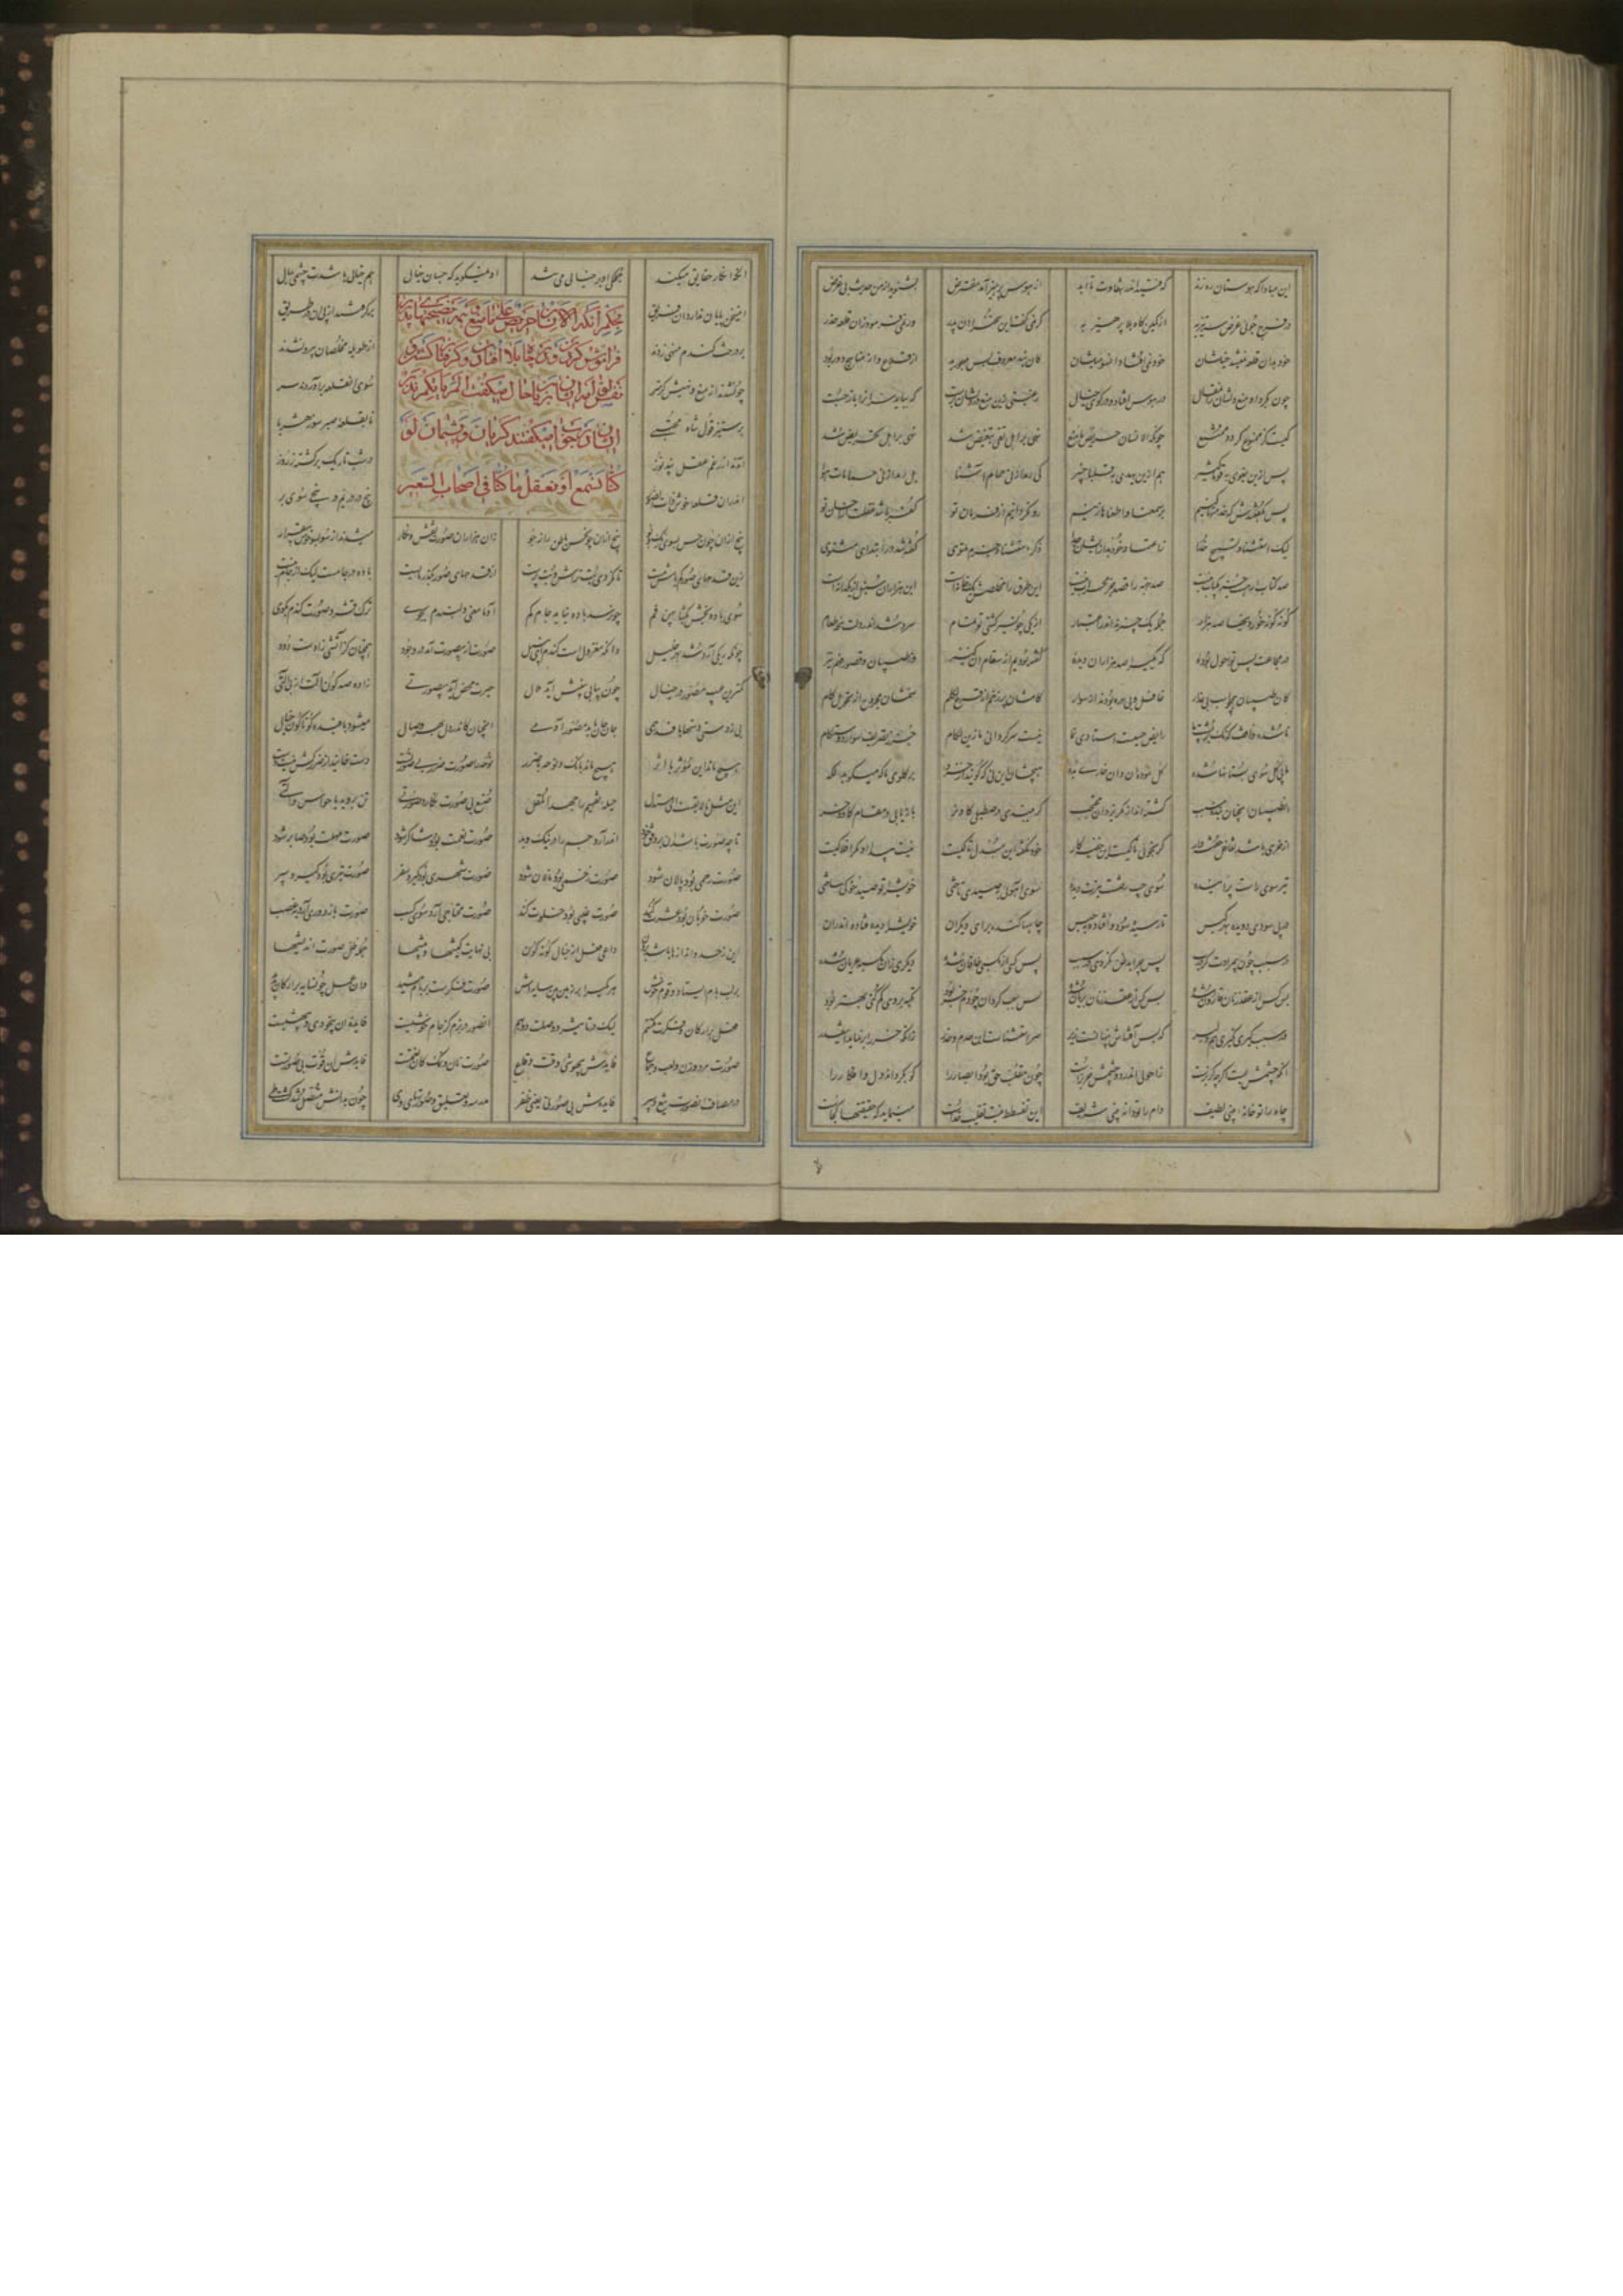 این مبادا که هوستان ره زند که فتید اندر شقاوت تا ابد از هوس پرهیز آمد مفترض بشنوید از من حدیث بی غرض
در فرج جوئی غرض سرتیز به از کمین گاه بلا پرهیز به گر نمی گفت این سخن را آن پدر ور نمی فرمود زان قلعه حذر
خود بدان قلعه نمیشد خیلشان خود نمی افتاد آن سو میلشان کان نبد معروف بس مهجور بود از قلاع و از مناهج دور بود
چون بکرد او منع دلشان زان مقال در هوس افتاد و در کوی خیال رغبتی زین منع در دلشان برست که بباید سر آنرا باز جست
کیست کز ممنوع گردد ممتنع چونکه الانسان حریص ما منع نهی بر اهل تقی تبغیض شد نهی بر اهل هوا تحریض شد
پس ازین یغوی به قوما کثیر هم ازین یهدی به قلبا خبیر کی رمد از نی حمام آشنا بل رمد زان نی حمامات هوا
پس بگفتندش که خدمتها کنیم بر سمعنا و اطعناها تنیم رو نگردانیم از فرمان تو کفر باشد غفلت از احسان تو
لیک استثنا و تسبیح خدا ز اعتماد خود بد از ایشان جدا ذکر استثنا و حزم ملتوی گفته شد در ابتدای مثنوی
صد کتاب ار هست جز یک باب نیست صد جهت را قصد جز محراب نیست این طرق را مخلصش یک خانه است این هزاران سنبل از یک دانه است
گونه گونه خوردنیها صد هزار جمله یک چیزست اندر اعتبار از یکی چون سیر گشتی تو تمام سرد شد اندر دلت پنجه طعام
در مجاعت پس تو احول بوده که یکی را صد هزاران دیده گفته بودیم از سقام آن کنیز وز طبیبان و قصور فهم نیز
کان طبیبان همچو اسب بی عذار غافل و بی بهره بودند از سوار کامشان پر زخم از قرع لگام سمشان مجروح از تحویل گام
ناشده واقف که نک بر پشت ما رایض چستست استادی نما نیست سرگردانی ما زین لگام جز ز تصریف سوار دوستکام
ما پی گل سوی بستانها شده گل نموده آن و آن خاری بده هیچشان این نی که گویند از خرد بر گلوی ما که میکوبد لگد
آن طبیبان آنچنان بنده سبب گشته اند از مکر یزدان محتجب گر ببندی در صطبلی گاو نر باز یابی در مقام گاو خر
از خری باشد تغافل خفته وار که نجوئی تا کیست این خفیه کار خود نگفته این مبدل تا کیست نیست پیدا او مگر افلاکیست
تیر سوی راست پرانیده سوی چپ رفتست تیرت دیده سوی آهوئی بصیدی تاختی خویش را تو صید خوکی ساختی
در پی سودی دویده بهر کبس نارسیده سود و افتاده بحبس چاهها کنده برای دیگران خویش را دیده فتاده اندران
در سبب چون بی مرادت کرد رب پس چرا بدظن نگردی در سبب بس کسی از مکسبی خاقان شده دیگری زان مکسبه عریان شده
بس کس از عقد زنان قارون شده بس کس از عقد زنان مدیون شده پس سبب گردان چو دم خر بود تکیه بر وی کم کنی بهتر بود
ور سبب گیری نگیری هم دلیر که بس آفتهاش پنهانست زیر سر استثناست این حزم و حذر زانکه خر را بز نماید این قدر
آنکه چشمش بست گرچه گربزست ز احولی اندر دو چشمش خر بزست چون مقلب حق بود ابصار را که بگرداند دل و افکار را
چاه را تو خانه بینی لطیف دام را تو دانه بینی شریف این تسفسط نیست تقلیب خداست مینماید که حقیقتها کجاست
آنکه انکار حقایق میکند جملگی او بر خیالی می تند او نمیگوید که حسبان خیال هم خیالی باشدت چشمی بمال
بحکم آنکه الانسان حریص علی ما منع
کنا نسمع او نعقل ما کنا فی اصحاب السعیر
این سخن پایان ندارد آن فریق برگرفتند از پی آن دز طریق
بر درخت گندم منهی زدند از طویله مخلصان بیرون شدند
چون شدند از منع و نهیش گرمتر سوی آن قلعه برآوردند سر
بر ستیز قول شاه مجتبی تا بقلعه صبر سوز هش ربا
آمدند از رغم عقل پندتوز در شب تاریک برگشته ز روز
اندران قلعه خوش ذات الصور پنج در در یم و پنجی سوی بر
پنج ازان چون حس بسوی رنگ و بو پنج ازان چون حس باطن رازجو زان هزاران صورت و نقش و نگار میشدند از سو بسو خوش بیقرار
زین قدحهای صور کم باش مست تا نگردی بت تراش و بت پرست از قدحهای صور بگذر مایست باده در جامست لیک از جام نیست
سوی باده بخش بگشا پهن فم چون رسد باده نیاید جام کم آدما معنی دلبندم بجوی ترک قشر و صورت گندم بگوی
چونکه ریگی آرد شد بهر خلیل دانکه معزولست گندم ای نبیل صورت از بی صورت آمد در وجود همچنان کز آتشی زادست دود
کمترین عیب مصور در خصال چون پیاپی بینیش آید ملال حیرت محض آردت بی صورتی زاده صد گون آلت از بی آلتی
بی ز دستی دستها بافد همی جان جان سازد مصور آدمی آنچنان کاندر دل از هجر و وصال میشود بافیده گوناگون خیال
هیچ ماند این مؤثر با اثر هیچ ماند بانگ و نوحه با ضرر نوحه را صورت ضرر بی صورتست دست خایند از ضرر کش نیست دست
این مثل نالایقست ای مستدل حیله تفهیم را جهد المقل صنع بی صورت بکارد صورتی تن بروید با حواس و آلتی
تا چه صورت باشد آن بر وفق خود اندر آرد جسم را در نیک و بد صورت نعمت بود شاکر شود صورت مهلت بود صابر شود
صورت رحمی بود بالان شود صورت زخمی بود نالان شود صورت شهری بود گیرد سفر صورت تیری بود گیرد سپر
صورت خوبان بود عشرت کند صورت غیبی بود خلوت کند صورت محتاجی آرد سوی کسب صورت بازو وری آرد بغصب
این ز حد و اندازها باشد برون داعی فعل از خیال گونه گون بی نهایت کیشها و پیشها جمله ظل صورت اندیشها
بر لب بام ایستاده قوم خوش هر یکی را بر زمین بین سایه اش صورت فکرست بر بام مشید وان عمل چون سایه بر ارکان پدید
فعل بر ارکان و فکرت مکتتم لیک در تاثیر و وصلت دو بهم آن صور در بزم کز جام خوشیست فایده آن بیخودی و بیهشیست
صورت مرد و زن و لعب و جماع فایده ش بیهوشی وقت وقاع صورت نان و نمک کان نعمتست فایده ش آن قوت بی صورتست
در مصاف آن صورت تیغ و سپر فایده ش بی صورتی یعنی ظفر مدرسه و تعلیق و صورتهای وی چون بدانش متصل شد گشت طی